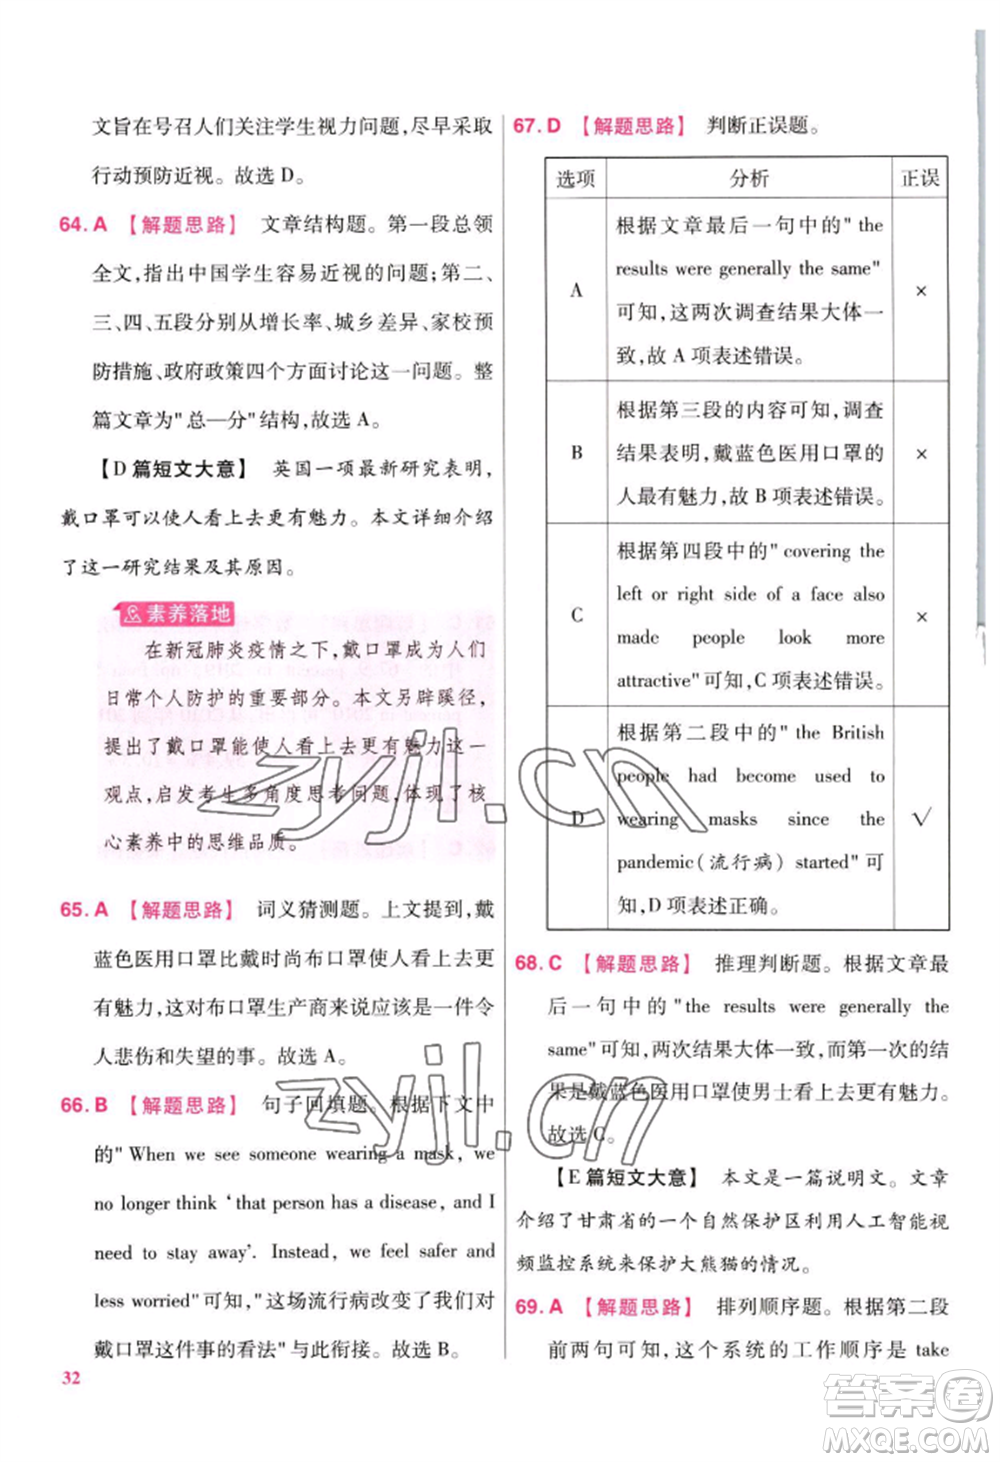 文旨在号召人们关注学生视力问题,尽早采取
行动预防近视。故选 D。
64. A 【解题思路】 文章结构题。第一段总领
全文,指出中国学生容易近视的问题;第二、
三、四、五段分别从增长率、城乡差异、家校预
防措施、政府政策四个方面讨论这一问题。整
篇文章为"总—分"结构,故选 A。
【D 篇短文大意】 英国一项最新研究表明,
戴口罩可以使人看上去更有魅力。本文详细介绍
了这一研究结果及其原因。
素养落地
在新冠肺炎疫情之下,戴口罩成为人们
日常个人防护的重要部分。本文另辟蹊径,
提出了戴口罩能使人看上去更有魅力这一
观点,启发考生多角度思考问题,体现了核
心素养中的思维品质。
65. A 【解题思路】 词义猜测题。上文提到,戴
蓝色医用口罩比戴时尚布口罩使人看上去更
有魅力,这对布口罩生产商来说应该是一件令
人悲伤和失望的事。故选 A。
66. B 【解题思路】 句子回填题。根据下文中
的"When we see someone wearing a mask, we
no longer think ‘that person has a disease, and I
need to stay away’. Instead, we feel safer and
less worried"可知,"这场流行病改变了我们对
戴口罩这件事的看法"与此衔接。故选 B。
32
67. D 【解题思路】 判断正误题。
选项 分析 正误
A 根据文章最后一句中的" the
results were generally the same"
可知,这两次调查结果大体一
致,故 A 项表述错误。 ×
B 根据第三段的内容可知,调查
结果表明,戴蓝色医用口罩的
人最有魅力,故 B 项表述错误。 ×
C 根据第四段中的" covering the
left or right side of a face also
made people look more
attractive"可知,C 项表述错误。 ×
D 根据第二段中的" the British
people had become used to
wearing masks since the
pandemic(流行病) started"可
知,D 项表述正确。 √
68. C 【解题思路】 推理判断题。根据文章最
后一句中的"the results were generally the
same"可知,两次结果大体一致,而第一次的结
果是戴蓝色医用口罩使男士看上去更有魅力。
故选 C。
【E 篇短文大意】 本文是一篇说明文。文章
介绍了甘肃省的一个自然保护区利用人工智能视
频监控系统来保护大熊猫的情况。
69. A 【解题思路】 排列顺序题。根据第二段
前两句可知,这个系统的工作顺序是 take
zyjl.cn
zyjl.cn
答案圈
MXQE.COM